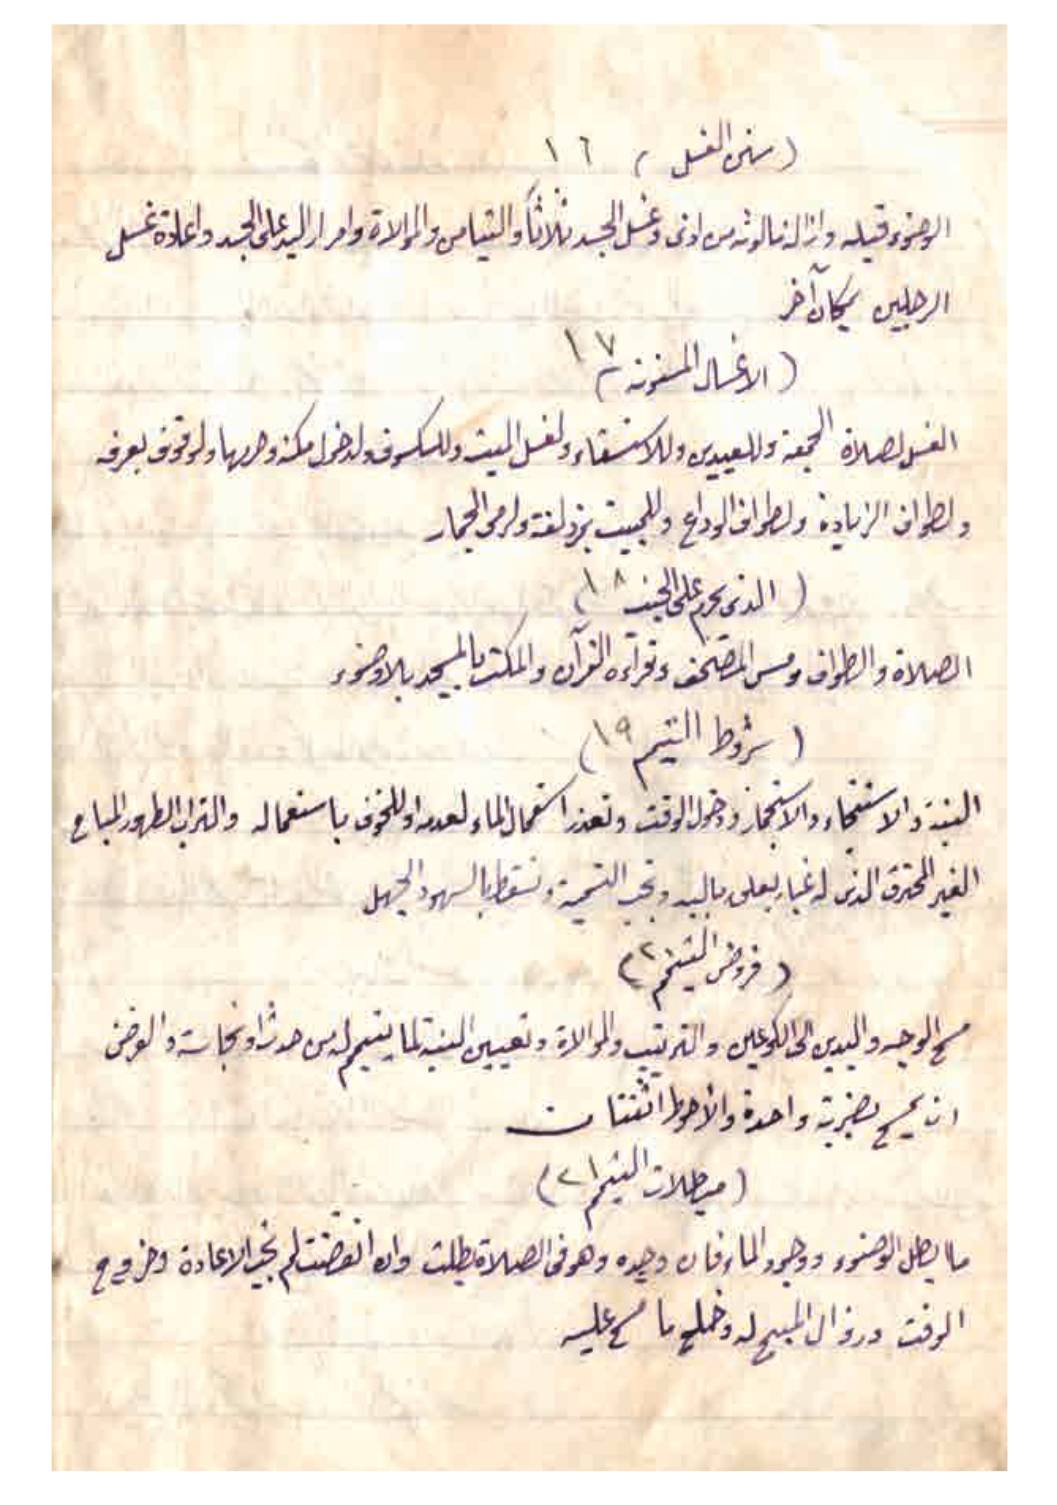 ( سنن الغسل ) ١٦
الوضوء قبله وازالة مالوثه من اذى وغسل الجسد ثلاثاً والتيامن والموالاة وامرار اليد على الجسد واعادة غسل
الرجلين بمكان آخر
( الاغسال المسنونة ) ١٧
الغسل لصلاة الجمعة وللعيدين وللاستسقاء ولغسل الميت وللكسوف ولدخول مكة وحرمها ولوقوف بعرفه
ولطواف الزيادة ولطواف الوداع وللمبيت بمزدلفة ولرمي الجمار
( الذى يحرم على الجنب ١٨ )
الصلاة والطواف ومس المصحف وقرآءة القرآن والمكث بالمسجد بلا وضوء
( شروط التيمم ١٩ )
النية والاستنجاء والاستجمار ودخول الوقت وتعذر استعمال الماء لعدمه او للخوف باستعماله والتراب الطهور المباح
الغير المحترق الذى له غبار يعلق باليد وتجب التسمية وتسقط بالسهو والجهل
( فروض التيمم ٢٠ )
مسح الوجه واليدين الى الكوعين والترتيب والموالاة وتعيين النية لما يتيمم له من حدث او نجاسة والفرض
ان يمسح بضربة واحدة والأحوط اثنتان
( مبطلات التيمم ٢١ )
ما يبطل الوضوء ووجود الماء فان وجده وهو فى الصلاة بطلت وان انقضت لم تجب الاعادة وخروج
الوقت وزوال المبيح له وخلع ما مسح عليه